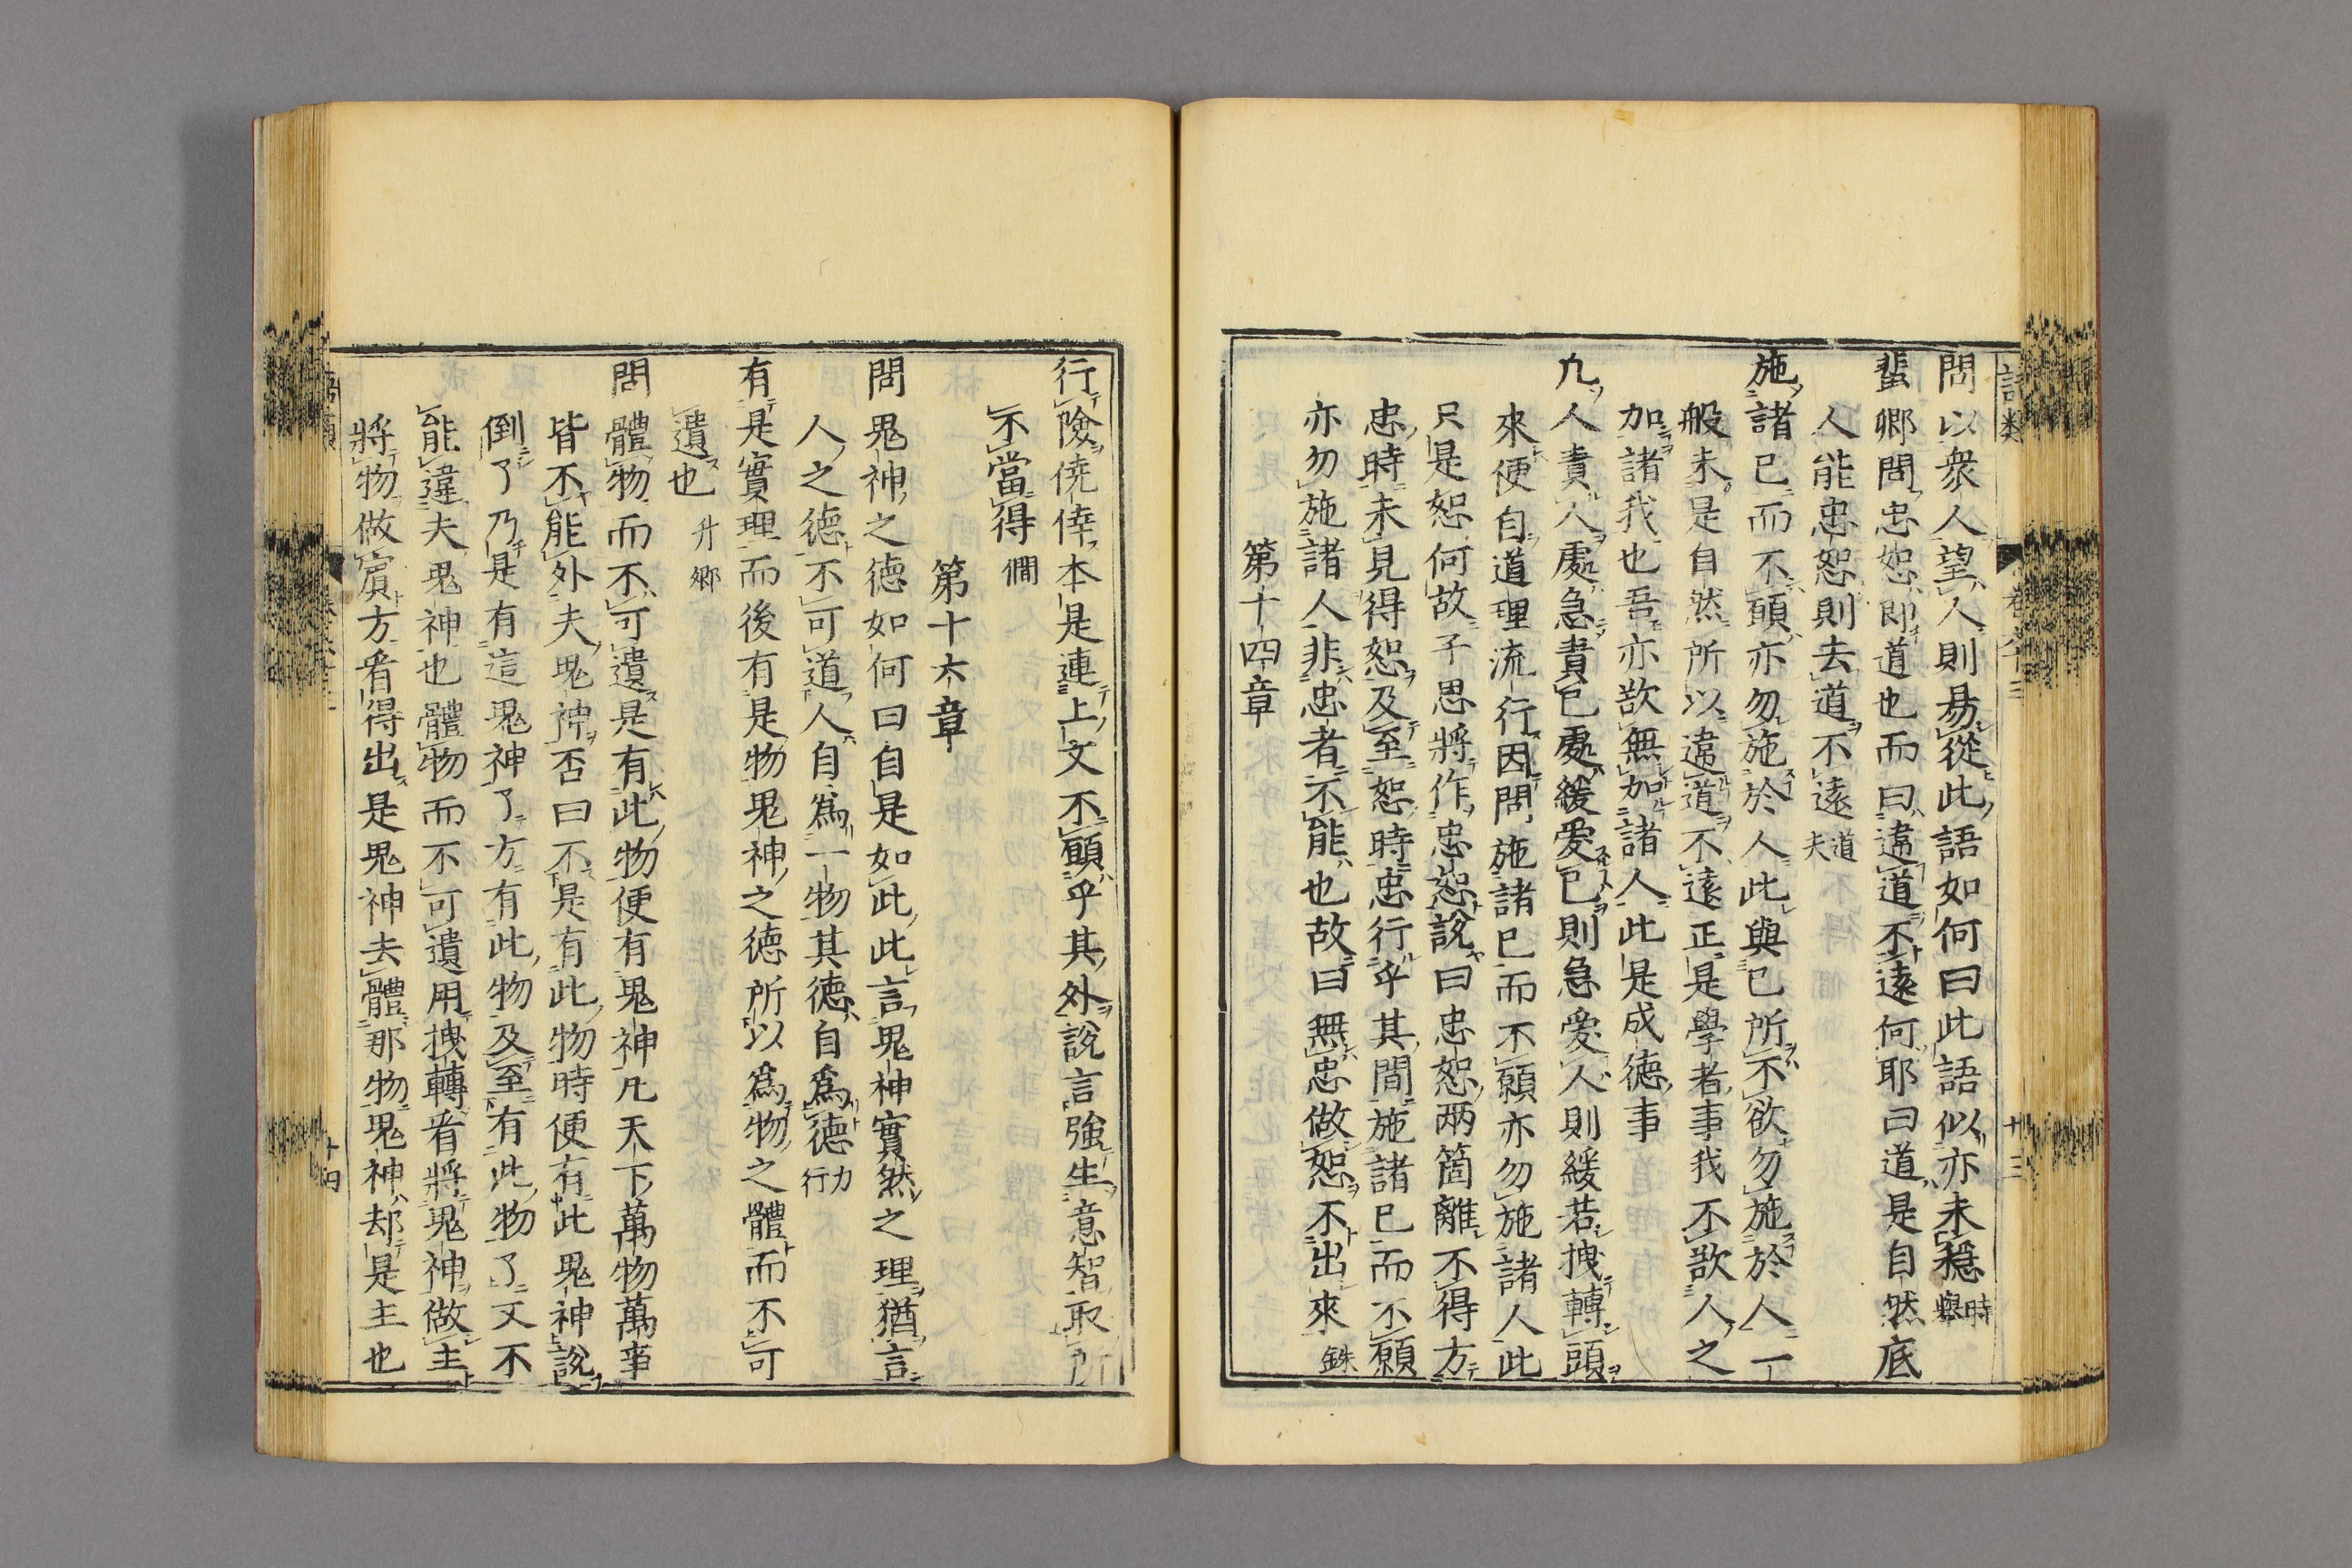 問以衆人望人則易從此語如何曰此語似亦未穩 時舉
蜚卿問忠恕即道也而曰違道不遠何耶曰道是自然底
人能忠恕則去道不遠 道夫
施諸己而不願亦勿施於人此與己所不欲勿施於人一
般未是自然所以違道不遠正是學者事我不欲人之
加諸我也吾亦欲無加諸人此是成德事
凢人責人處急責己處緩愛己則急愛人則緩若拽轉頭
來便自道理流行因問施諸己而不願亦勿施諸人此
只是恕何故子思將作忠恕說曰忠恕兩箇離不得方
忠時未見得恕及至恕時忠行乎其間施諸己而不願
亦勿施諸人非忠者不能也故曰無忠做恕不出來 銖
第十四章
行險僥倖本是連上文不願乎其外說言強生意智取所
不當得 僩
第十六章
問鬼神之德如何曰自是如此此言鬼神實然之理猶言
人之德不可道人自爲一物其德自爲德 力行
有是實理而後有是物鬼神之德所以爲物之體而不可
遺也 升卿
問體物而不可遺是有此物便有鬼神凡天下萬物萬事
皆不能外夫鬼神否曰不是有此物時便有此鬼神說
倒了乃是有這鬼神了方有此物及至有此物了又不
能違夫鬼神也體物而不可遺用拽轉看將鬼神做主
將物做賓方看得出是鬼神去體那物鬼神却是主也